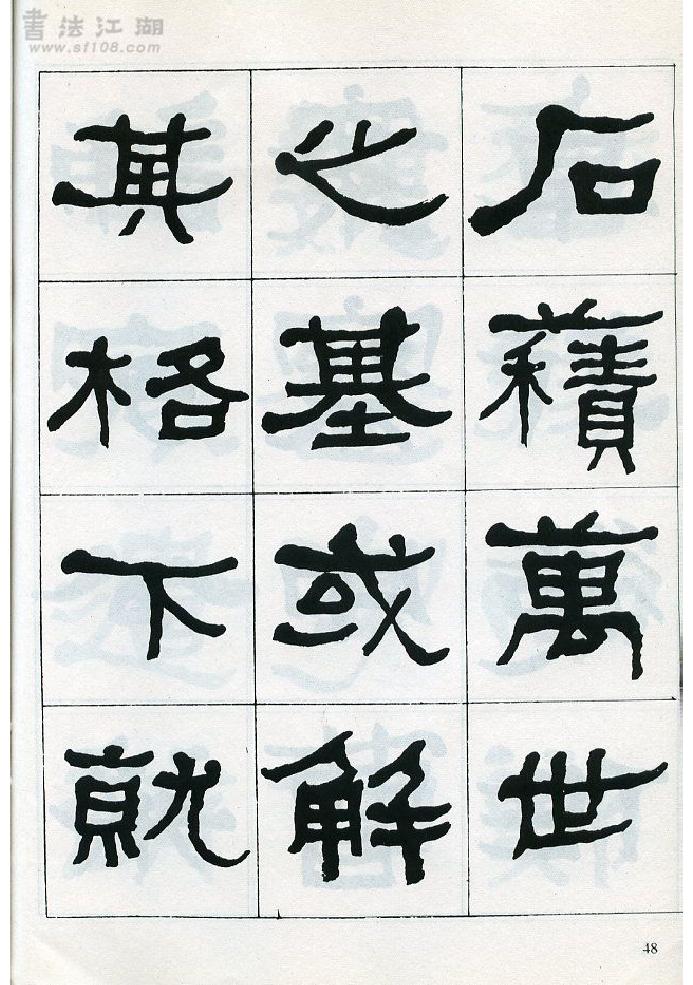 書法江湖
www.sf108.com
石積萬世
之基或解
其格下就
48